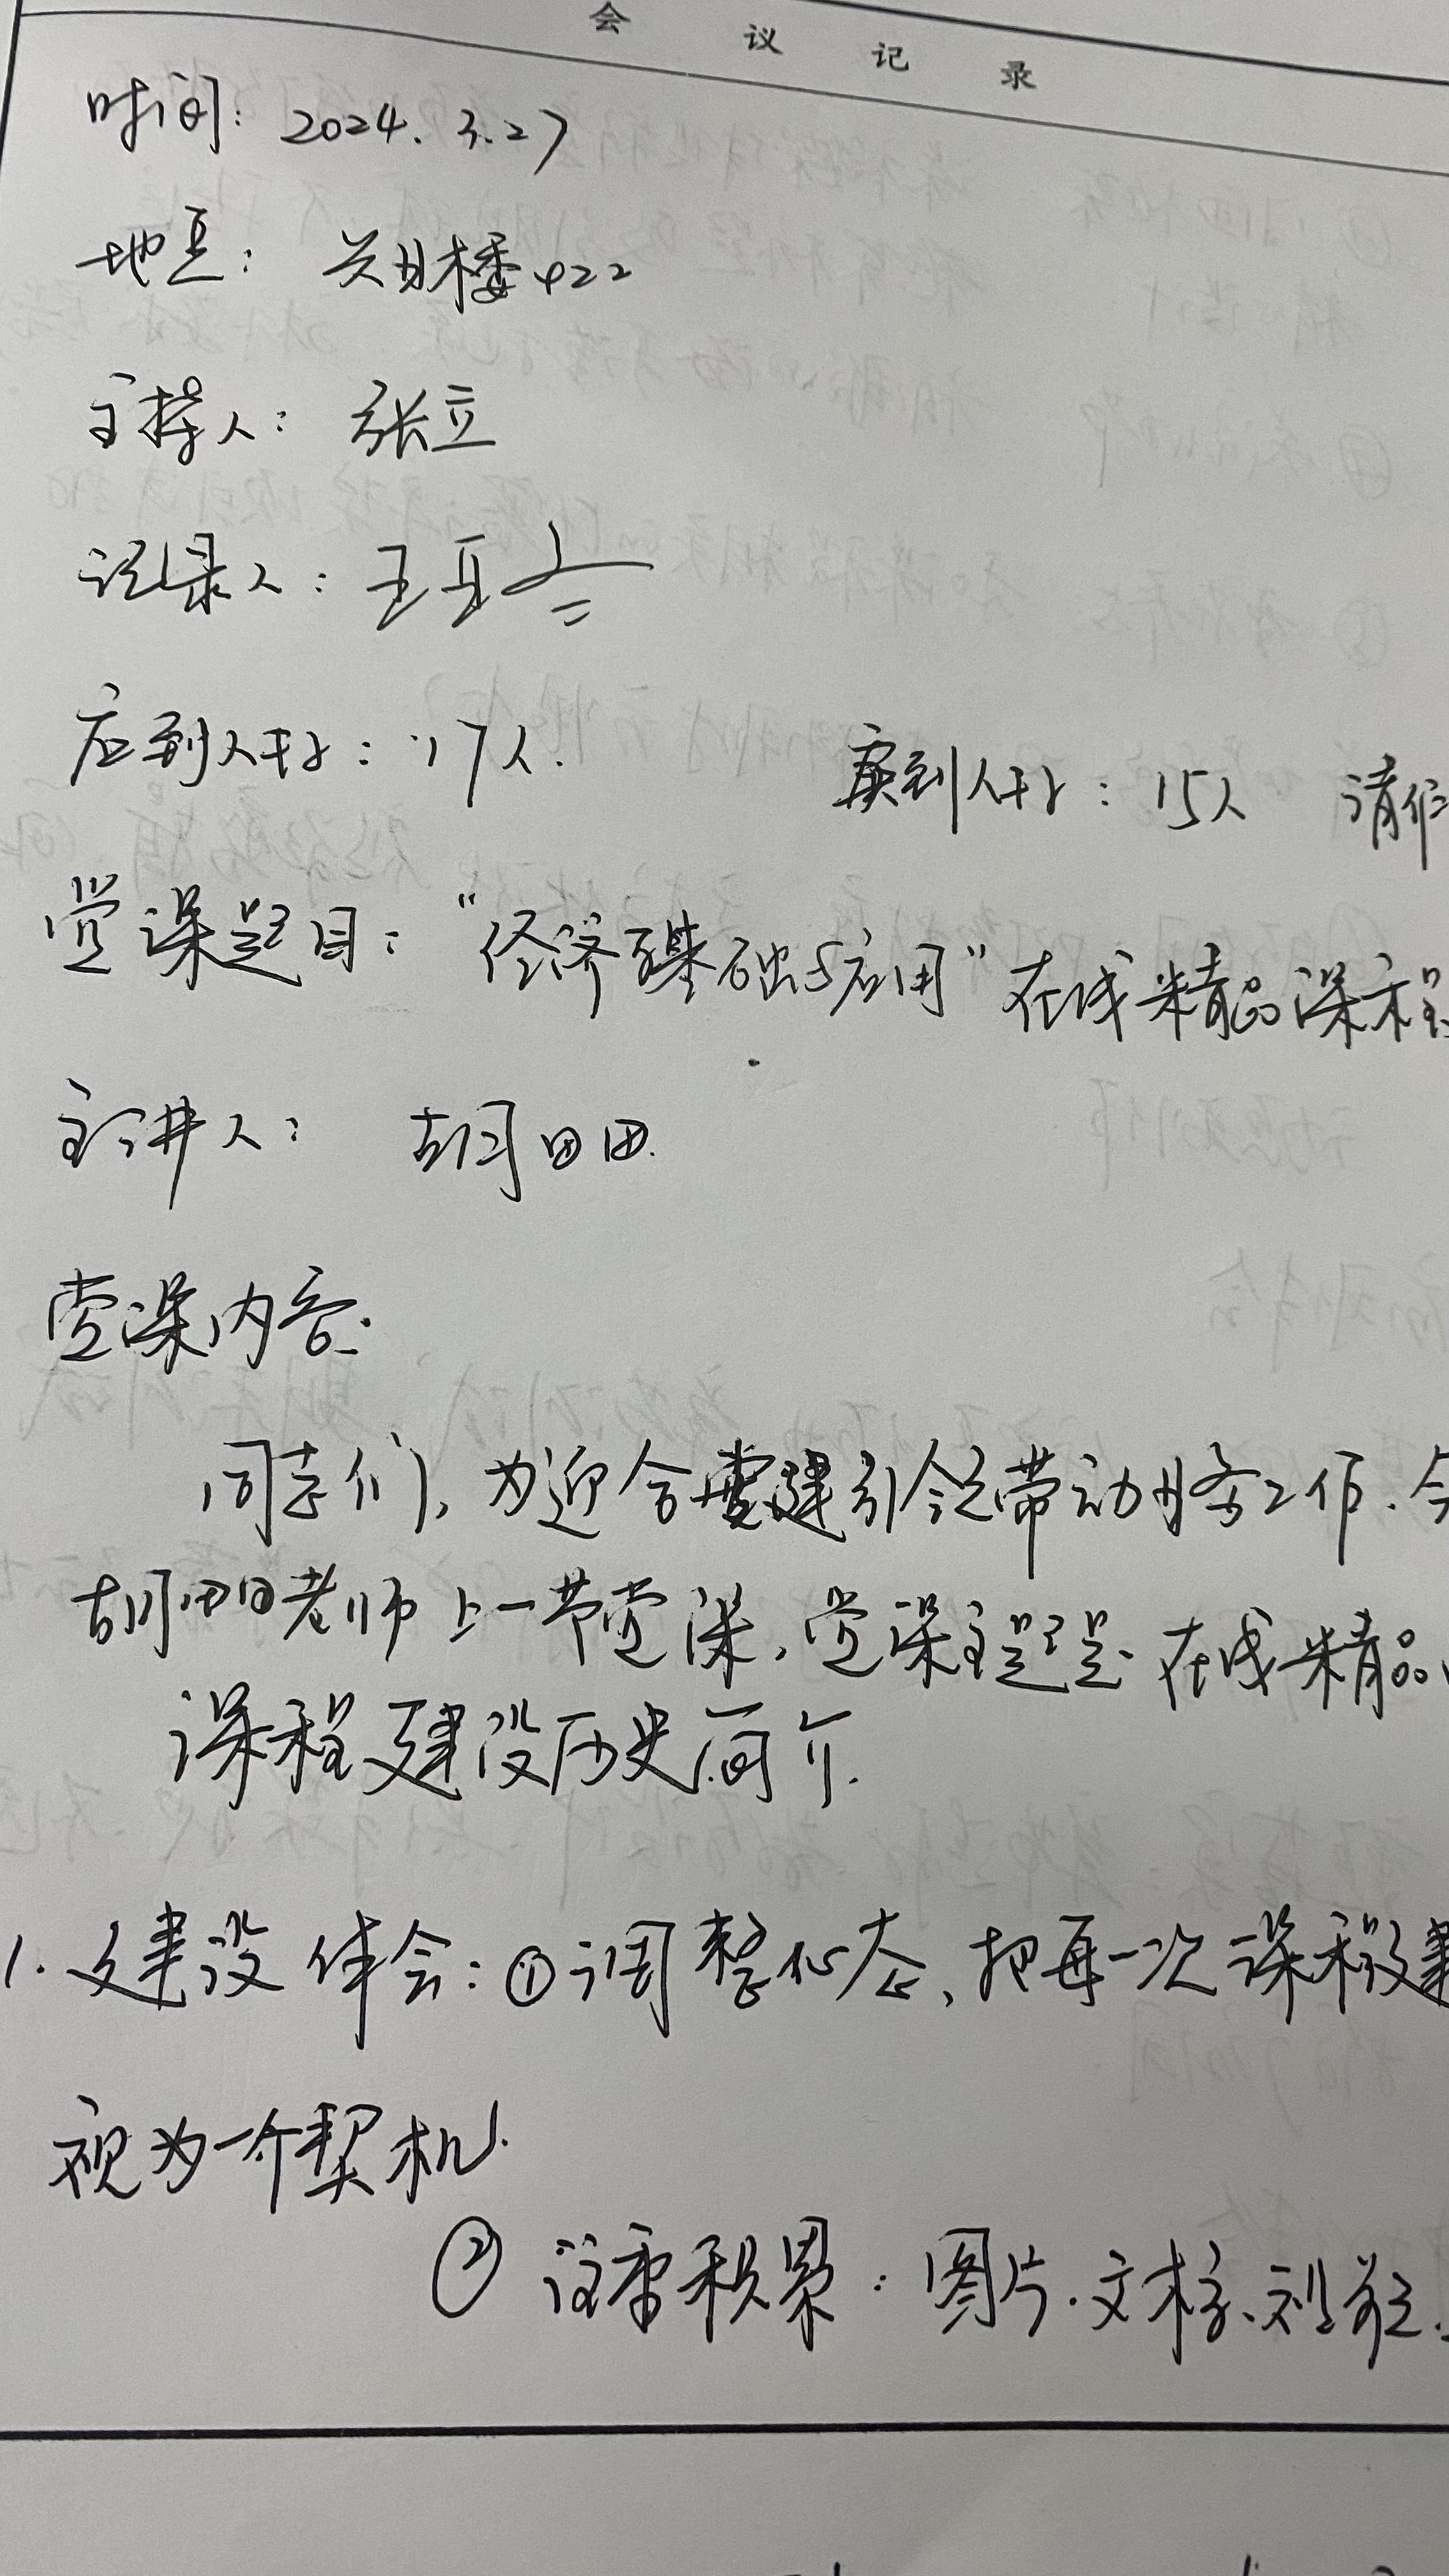 会议记录
时间: 2024.3.27
地点: 楼422
主持人: 张立
记录人: 王
应到人数: 17人. 实到人数: 15人 请假
党课题目: “经济基础与应用”在线精品课程
主讲人: 胡田田.
党课内容:
同志们, 为迎合党建引领带动业务工作. 今
胡田田老师上一节党课, 党课主题是 在线精品
课程建设历史简介.
1. 建设体会: ①调整心态, 把每一次课程建
视为一个契机.
② 注重积累: 图片.文本、